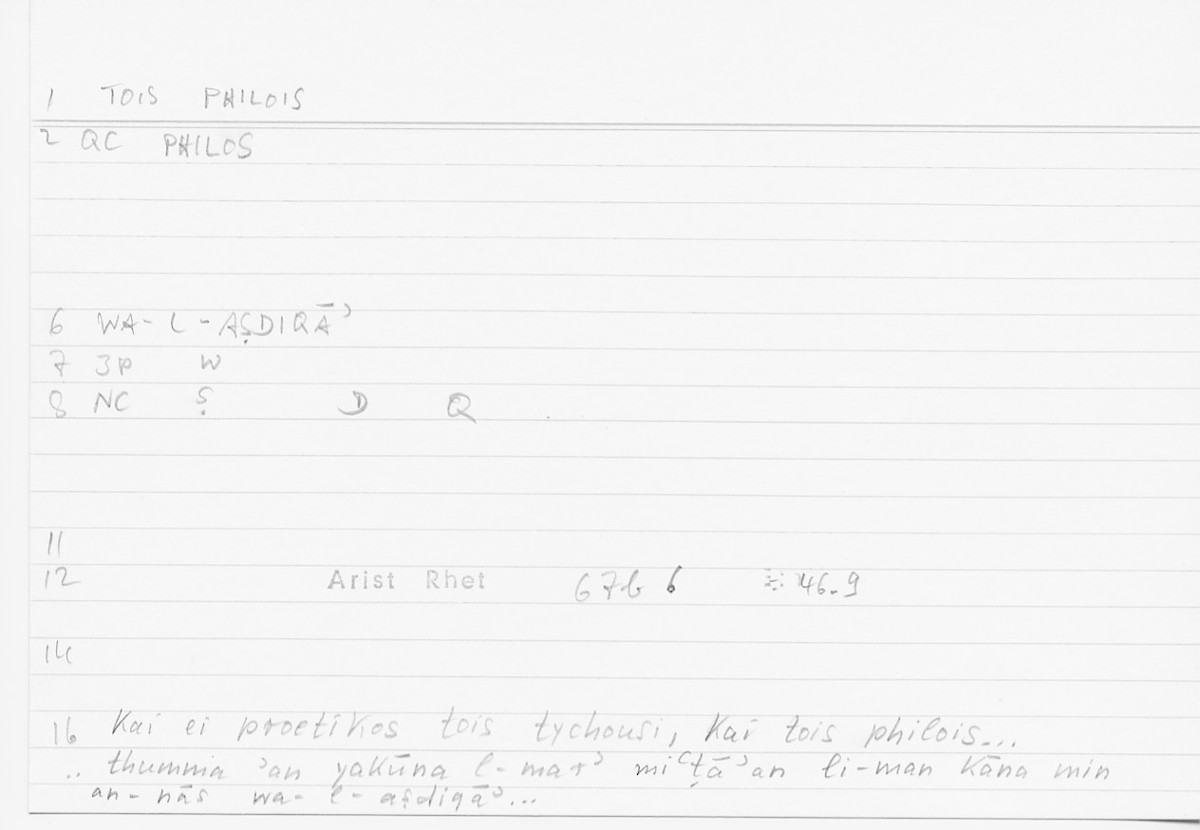 1 TOIS PHILOIS
2 QC PHILOS
6 WA-L-AṢDIQĀʾ
7 3P W
8 NC Ṣ D Q
11
12 Arist Rhet 67b 6 = 46.9
14
16 Kai ei proetikos tois tychousi, kai tois philois...
.. thumma ʾan yakūna l-marʾ miʿṭāʾan li-man kāna min
an-nās wa-l-aṣdiqāʾ...